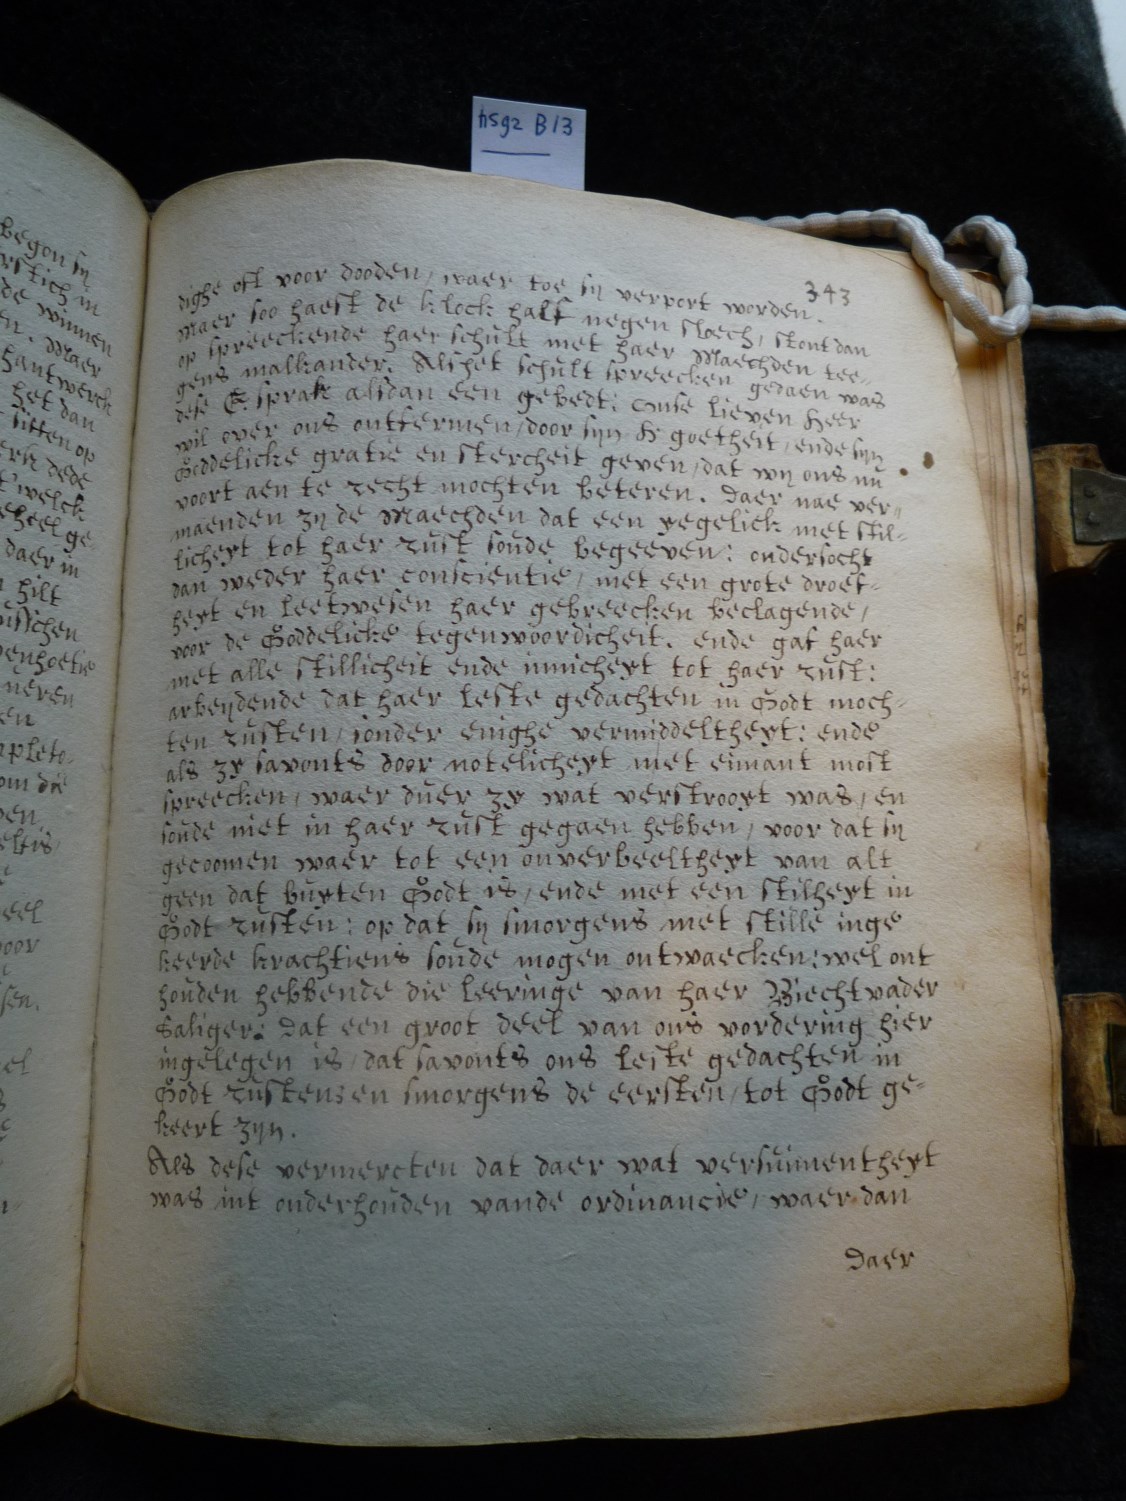 hsg2 B13
343
dighe oft voor dooden, waer toe sij verport worden.
Maer soo haest de klock half negen sloech, stont dan
op spreeckende haer schült met haer Maechden tee-
gens malkander. Als het schült spreecken gedaen was
dese E. sprak alsdan een gebedt: onse lieven Heer
wil over ons ontfermen, door sijn H goetheit, ende sijn
Goddelicke gratie en stercheit geven, dat wij ons nü
voort aen te recht mochten beteren. Daer nae ver-
maenden zij de Maechden dat een yegelick met stil-
licheyt tot haer rüst soüde begeeven: ondersocht
dan weder haer conscientie, met een grote droef-
heyt en leetwesen haer gebreecken beclagende,
voor de Goddelicke tegenwoordicheit. ende gaf haer
met alle stillicheit ende innicheyt tot haer rüst:
arbeijdende dat haer leste gedachten in Godt moch-
ten rüsten, sonder enighe vermiddeltheyt: ende
als zy savonts door notelicheyt met eimant most
spreecken, waer düer zy wat verstrooyt was, en
soüde niet in haer rüst gegaen hebben, voor dat sij
gecoomen waer tot een onverbeeltheyt van alt
geen dat büyten Godt is, ende met een stilheyt in
Godt rüsten: op dat sij smorgens met stille inge
keerde krachtiens soüde mogen ontwaecken: wel ont
hoüden hebbende die leeringe van haer Biechtvader
Saliger: dat een groot deel van ons vordering hier
ingelegen is, dat savonts ons leste gedachten in
Godt rüsten: en smorgens de eersten, tot Godt ge-
keert zijn.
Als dese vermercten dat daer wat versüimentheyt
was int onderhoüden vande ordinancie, waer dan
Daer